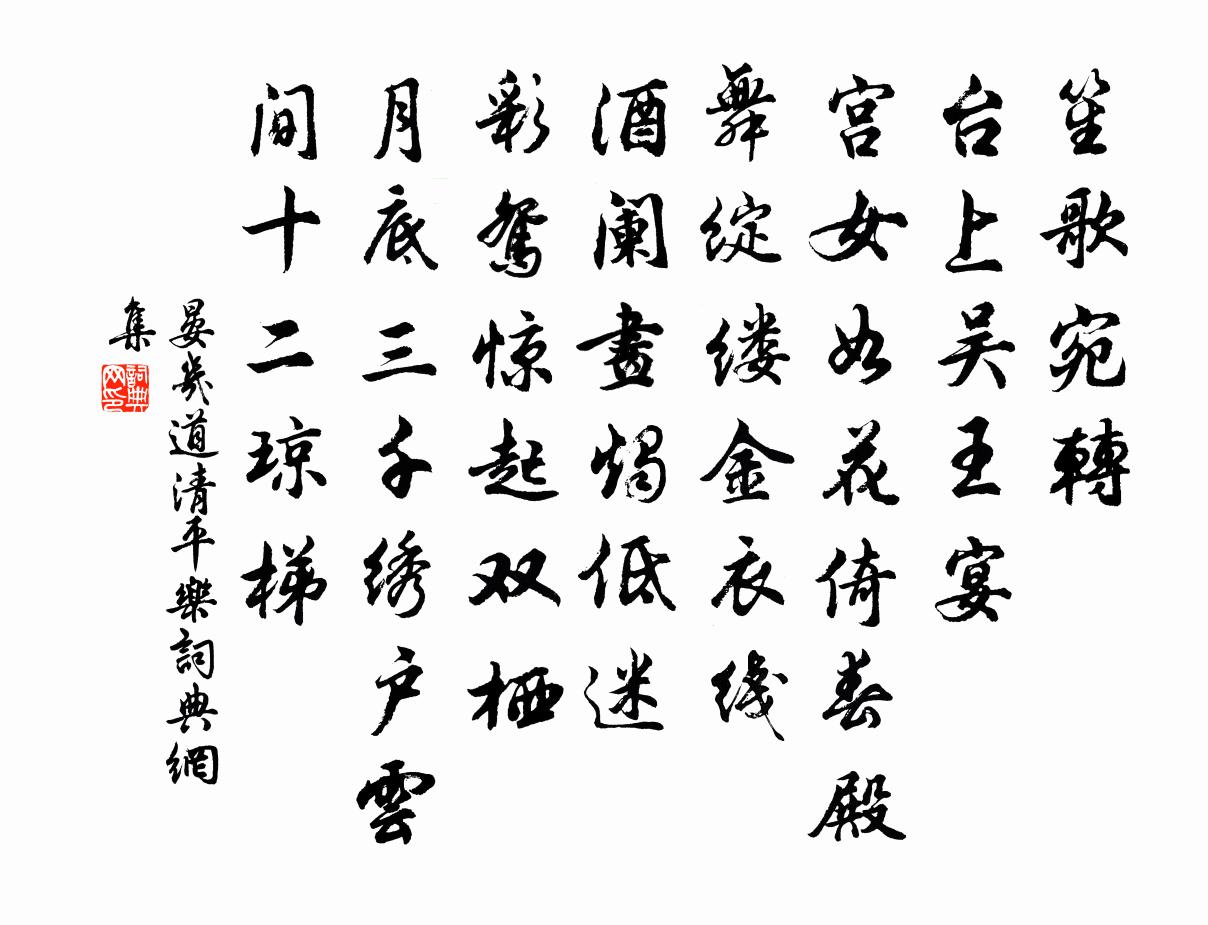 笙歌宛轉
台上吴王宴
宫女如花倚春殿
舞綻缕金衣线
酒阑畫燭低迷
彩鴛惊起双栖
月底三千绣户雲
间十二琼梯
晏幾道清平樂詞典網
集
詞典
网印